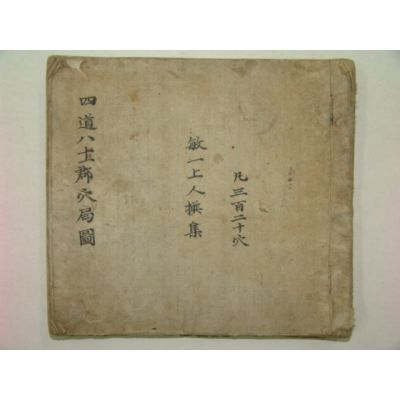 凡三百二十穴
敏一上人撰集
四道八十一郡穴局圖